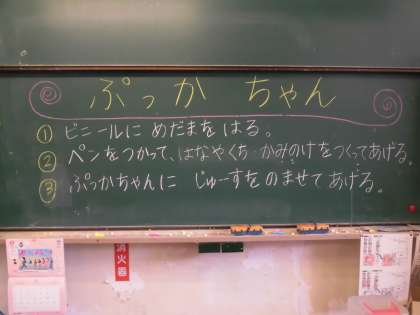 ぷっか ちゃん
① ビニールに めだまを はる。
② ペンをつかって、はなやくち・かみのけをつくってあげる。
③ ぷっかちゃんに じゅーすをのませてあげる。
消火器